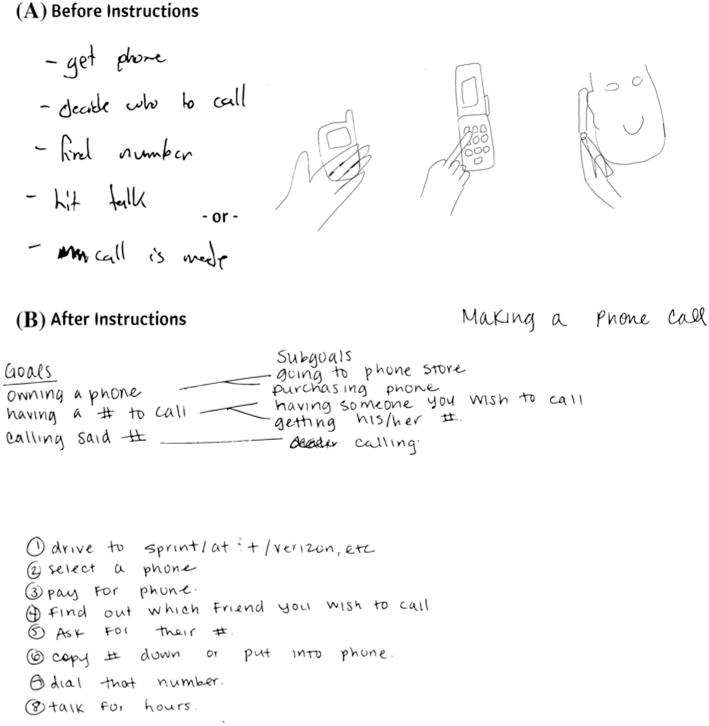 (A) Before Instructions
- get phone
- decide who to call
- find number
- hit talk
- or -
- call is made
(B) After Instructions
Making a phone call
Goals
owning a phone
having a # to call
calling said #
Subgoals
going to phone store
purchasing phone
having someone you wish to call
getting his/her #.
calling.
① drive to sprint/at:t/verizon, etc
② select a phone
③ pay for phone.
④ find out which friend you wish to call
⑤ Ask for their #.
⑥ copy # down or put into phone.
⑦ dial that number.
⑧ talk for hours.